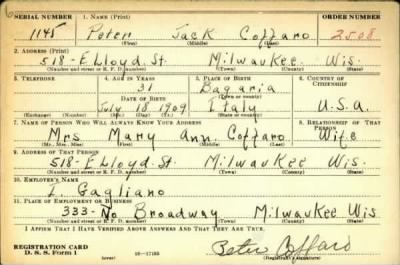 SERIAL NUMBER 1. NAME (Print) ORDER NUMBER
1145 Peter Jack Coffaro 2508
(First) (Middle) (Last)
2. ADDRESS (Print)
518-E Lloyd St. Milwaukee Wis.
(Number and street or R. F. D. number) (Town) (County) (State)
3. TELEPHONE 4. AGE IN YEARS 5. PLACE OF BIRTH 6. COUNTRY OF CITIZENSHIP
31 Bagaria
DATE OF BIRTH (Town or county)
July 18 1909 Italy U.S.A.
(Exchange) (Number) (Mo.) (Day) (Yr.) (State or country)
7. NAME OF PERSON WHO WILL ALWAYS KNOW YOUR ADDRESS 8. RELATIONSHIP OF THAT PERSON
Mrs Mary Ann Coffaro Wife
(Mr., Mrs., Miss) (First) (Middle) (Last)
9. ADDRESS OF THAT PERSON
518-E Lloyd St. Milwaukee Wis.
(Number and street or R. F. D. number) (Town) (County) (State)
10. EMPLOYER'S NAME
I. Gagliano
11. PLACE OF EMPLOYMENT OR BUSINESS
333-No Broadway Milwaukee Wis.
(Number and street or R. F. D. number) (Town) (County) (State)
I AFFIRM THAT I HAVE VERIFIED ABOVE ANSWERS AND THAT THEY ARE TRUE.
REGISTRATION CARD
D. S. S. Form 1 (over) 16—17105 Peter Coffaro
(Registrant's signature)